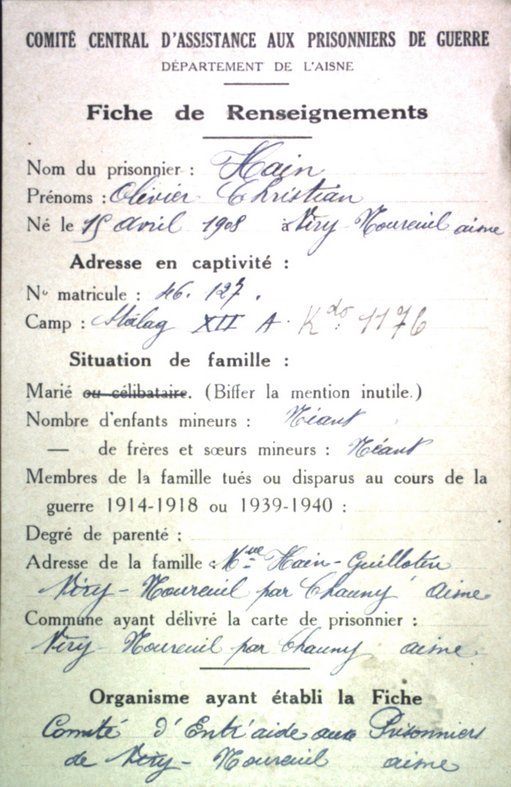 COMITÉ CENTRAL D'ASSISTANCE AUX PRISONNIERS DE GUERRE
DÉPARTEMENT DE L'AISNE
Fiche de Renseignements
Nom du prisonnier : Hain
Prénoms : Olivier Christian
Né le 15 Avril 1908 à Viry-Noureuil aisne
Adresse en captivité :
No matricule : 46.127.
Camp : Stalag XII A. Kdo. 1176
Situation de famille :
Marié ou célibataire. (Biffer la mention inutile.)
Nombre d'enfants mineurs : Néant
— de frères et sœurs mineurs : Néant
Membres de la famille tués ou disparus au cours de la
guerre 1914-1918 ou 1939-1940 :
Degré de parenté :
Adresse de la famille : Mme Hain-Guilloten
Viry-Noureuil par Chauny aisne
Commune ayant délivré la carte de prisonnier :
Viry-Noureuil par Chauny aisne
Organisme ayant établi la Fiche
Comité d'Entr'aide aux Prisonniers
de Viry-Noureuil aisne